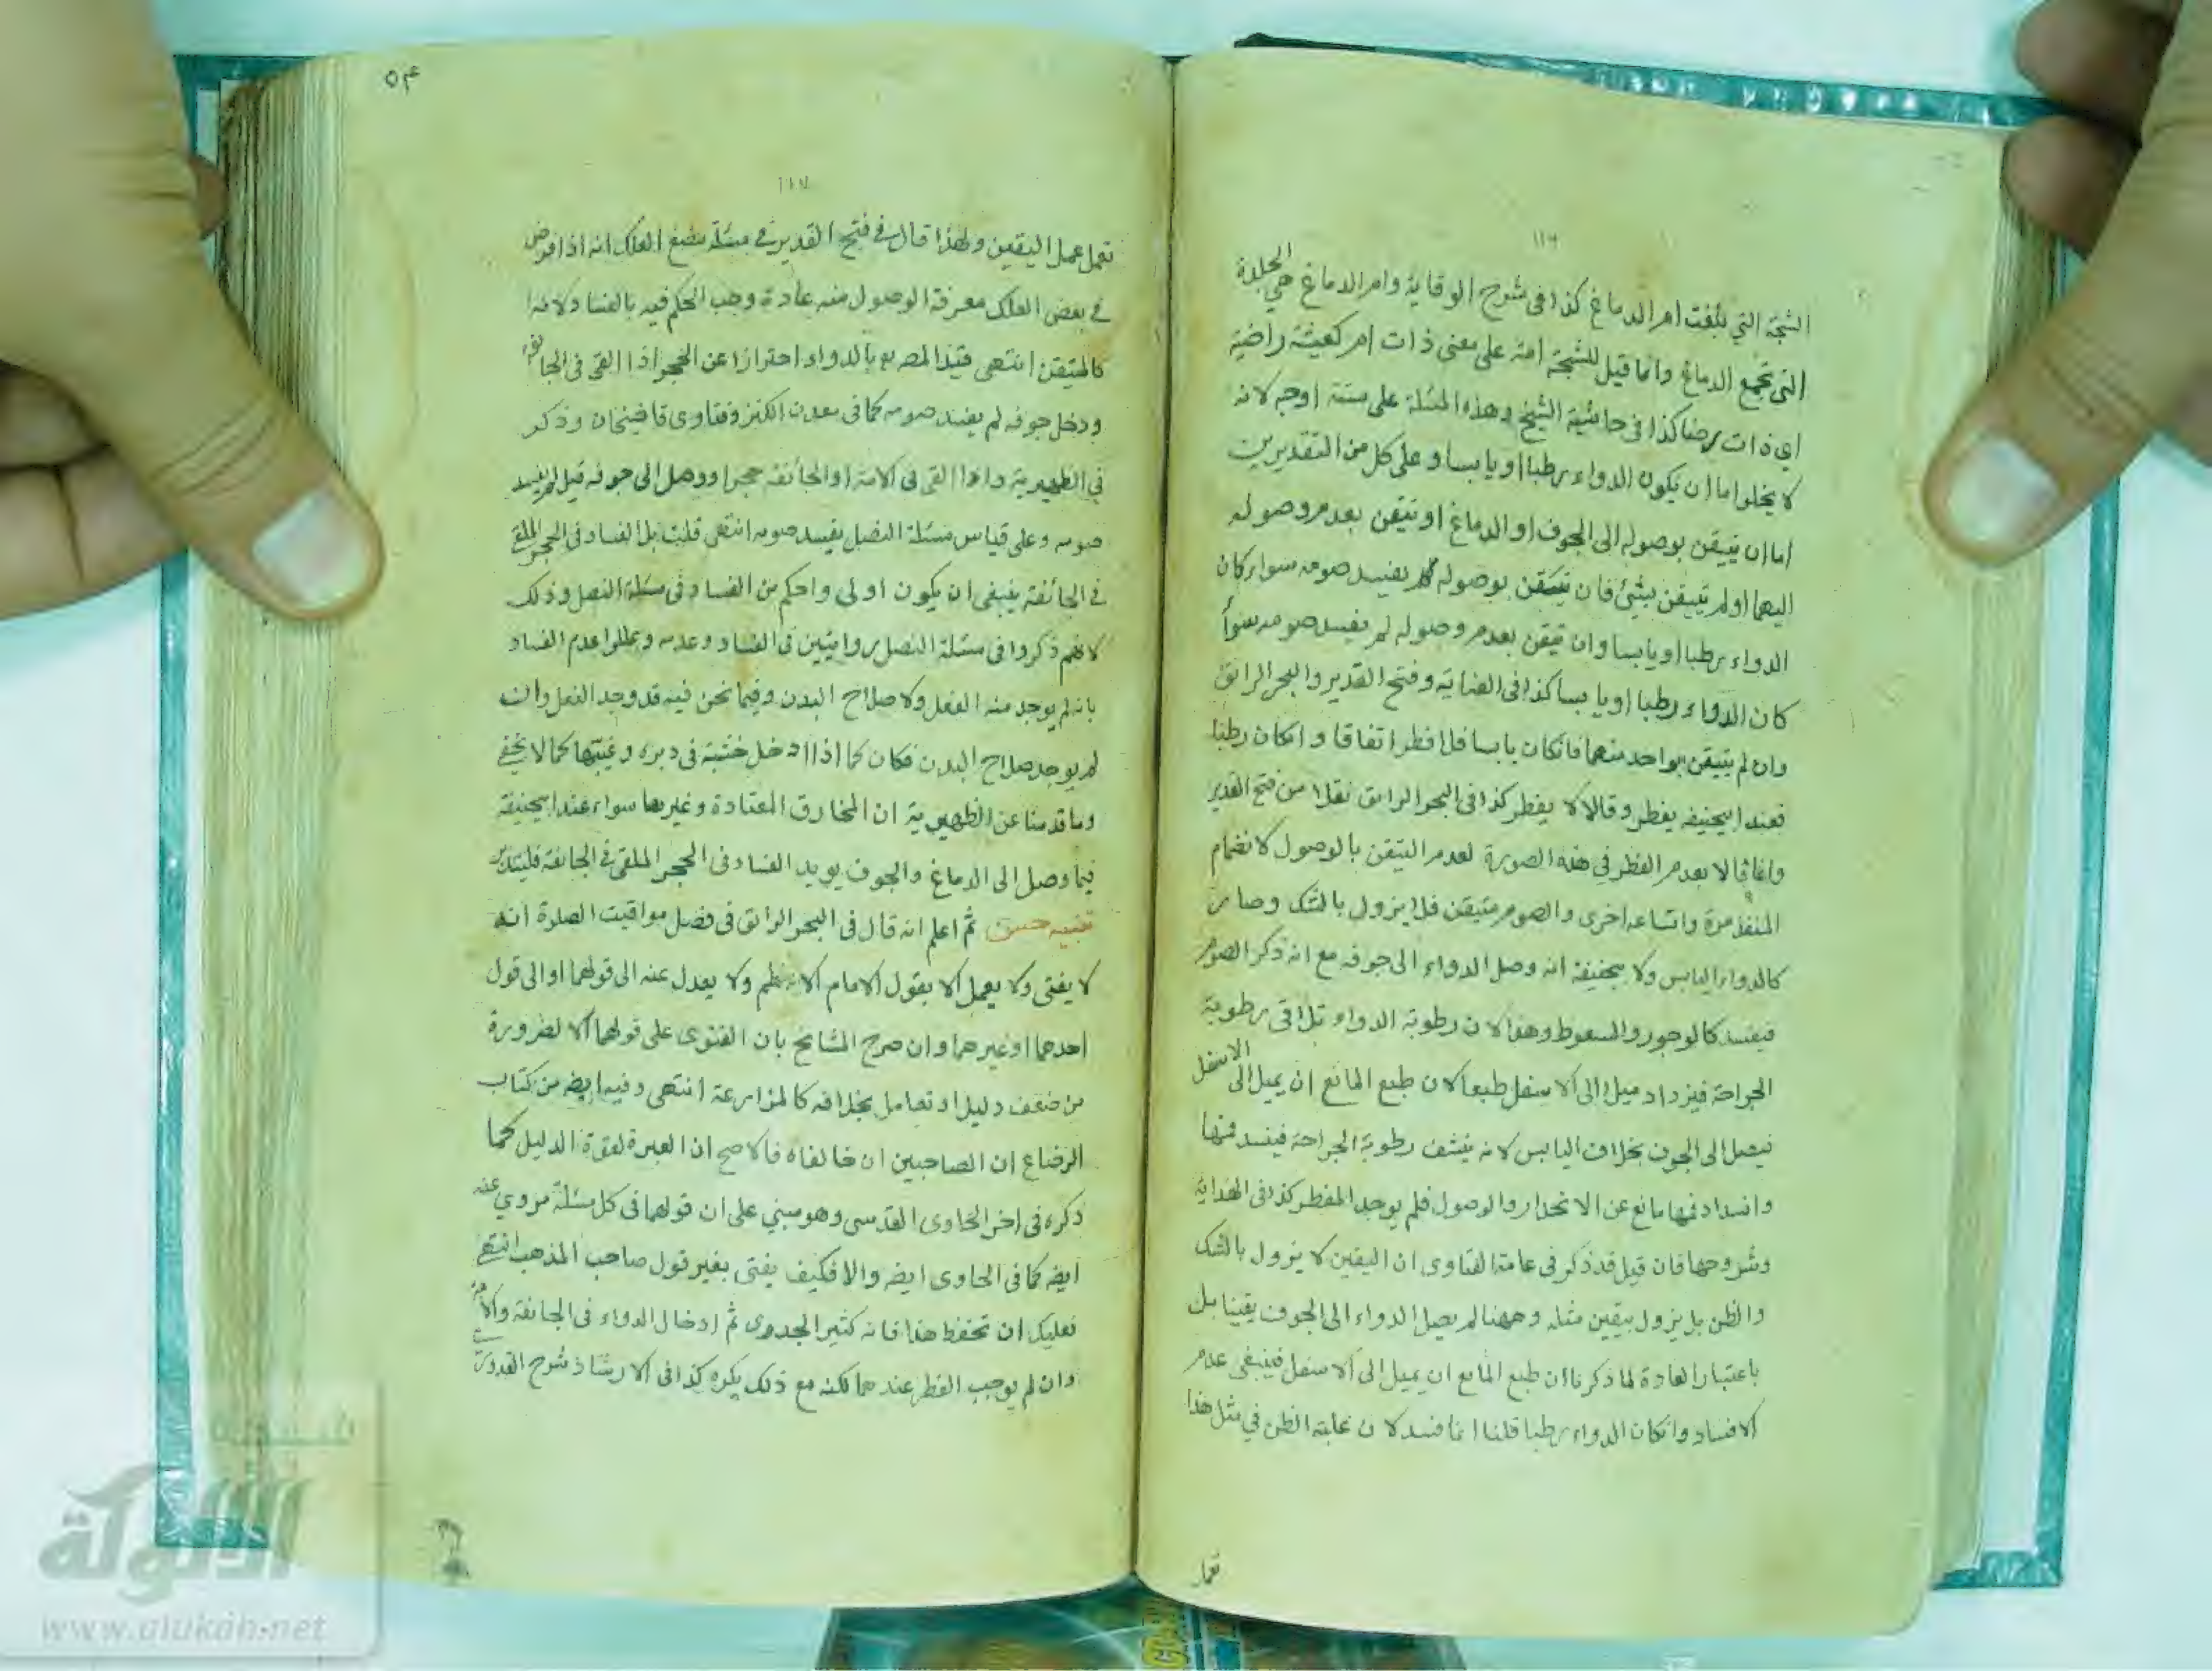 ١١٦
الشجة التي بلغت ام الدماغ كذا فى شرح الوقاية وام الدماغ هي الجلدة
التي تجمع الدماغ وانما قيل للشجة امة على معنى ذات ام كعيشة راضية
اي ذات رضا كذا فى حاشية الشيخ وهذه المسئلة على ستة اوجه لانه
لا يخلوا اما ان يكون الدواء رطبا او يابسا وعلى كل من التقديرين
اما ان تيقن بوصوله الى الجوف او الدماغ او تيقن بعدم وصوله
اليهما او لم تيقن بشئ فان تيقن بوصوله يفسد صومه سواء كان
الدواء رطبا او يابسا وان تيقن بعدم وصوله لم يفسد صومه سواء
كان الدواء رطبا او يابسا كذا فى العناية وفتح القدير والبحر الرائق
وان لم يتيقن بواحد منهما فانكان يابسا فلا فطر اتفاقا وانكان رطبا
فعند ابيحنيفه يفطر وقالا لا يفطر كذا فى البحر الرائق نقلا من فتح القدير
وانما قالا بعدم الفطر في هذه الصورة لعدم التيقن بالوصول لانضمام
المنفذ مرة واتساعه اخرى والصوم متيقن فلا يزول بالشك وصار
كالدواء اليابس ولابيحنيفة انه وصل الدواء الى جوفه مع انه ذكر الصوم
فيفسد كالوجور والسعوط وهذا لان رطوبة الدواء تلاقى رطوبة
الجراحة فيزداد ميلا الى الاسفل طبعا لان طبع المائع ان يميل الى الاسفل
فيصل الى الجوف بخلاف اليابس لانه ينشف رطوبة الجراحة فينسد فمها
وانسداد فمها مانع عن الانحدار والوصول فلم يوجد المفطر كذا فى الهداية
وشروحها فان قيل قد ذكر فى عامة الفتاوى ان اليقين لا يزول بالشك
والظن بل يزول بيقين مثله وههنا لم يصل الدواء الى الجوف يقينا بل
باعتبار العادة لما ذكرنا ان طبع المائع ان يميل الى الاسفل فينبغي عدم
الافساد وانكان الدواء رطبا قلنا انما فسد لان غلبة الظن في مثل هذا
تعمل
٥٤
١١٧
تعمل عمل اليقين ولهذا قال في فتح القدير في مسئلة مضغ العلك انه اذا فرض
في بعض العلك معرفة الوصول منه عادة وجب الحكم فيه بالفساد لانه
كالمتيقن انتهى قيد المصـ بالدواء احترازا عن الحجر اذا القى فى الجائفة
ودخل جوفه لم يفسد صومه كما فى معدن الكنز وفتاوى قاضيخان وذكر
في الظهيرية واذا القى فى الامة او الجائفة حجرا ووصل الى جوفه قيل لم يفسد
صومه وعلى قياس مسئلة النصل يفسد صومه انتهى قلت بل الفساد فى الحجر الملقى
في الجائفة ينبغى ان يكون اولى واحكم من الفساد فى مسئلة النصل وذلك
لانهم ذكروا فى مسئلة النصل روايتين فى الفساد وعدمه وعللوا عدم الفساد
بانه لم يوجد منه الفعل ولا صلاح البدن وفيما نحن فيه قد وجد الفعل وان
لم يوجد صلاح البدن فكان كما اذا ادخل خشبة فى دبره وغيبها كما لا يخفى
وما قدمنا عن الظهيرية ان المخارق المعتادة وغيرها سواء عند ابيحنيفة
فيما وصل الى الدماغ والجوف يويد الفساد فى الحجر الملقى في الجائفة فليتدبر
تنبيه حسن ثم اعلم انه قال فى البحر الرائق فى فصل مواقيت الصلاة انه
لا يفتى ولا يعمل الا بقول الامام الاعظم ولا يعدل عنه الى قولهما او الى قول
احدهما او غيرهما وان صرح المشايخ بان الفتوى على قولهما الا لضرورة
من ضعف دليل او تعامل بخلافه كالمزارعة انتهى وفيه ايضه من كتاب
الرضاع ان الصاحبين ان خالفاه فالاصح ان العبرة لقوة الدليل كما
ذكره فى اخر الحاوى القدسى وهو مبني على ان قولهما فى كل مسئلة مروي عنه
ايضه كما فى الحاوى ايضه والا فكيف يفتى بغير قول صاحب المذهب انتهى
فعليك ان تحفظ هذا فانه كثير الجدوى ثم ادخال الدواء فى الجائفة والامة
وان لم يوجب الفطر عندهما لكنه مع ذلك يكره كذا فى الارشاد شرح القدوري
شبكة
الألوكة
www.alukah.net